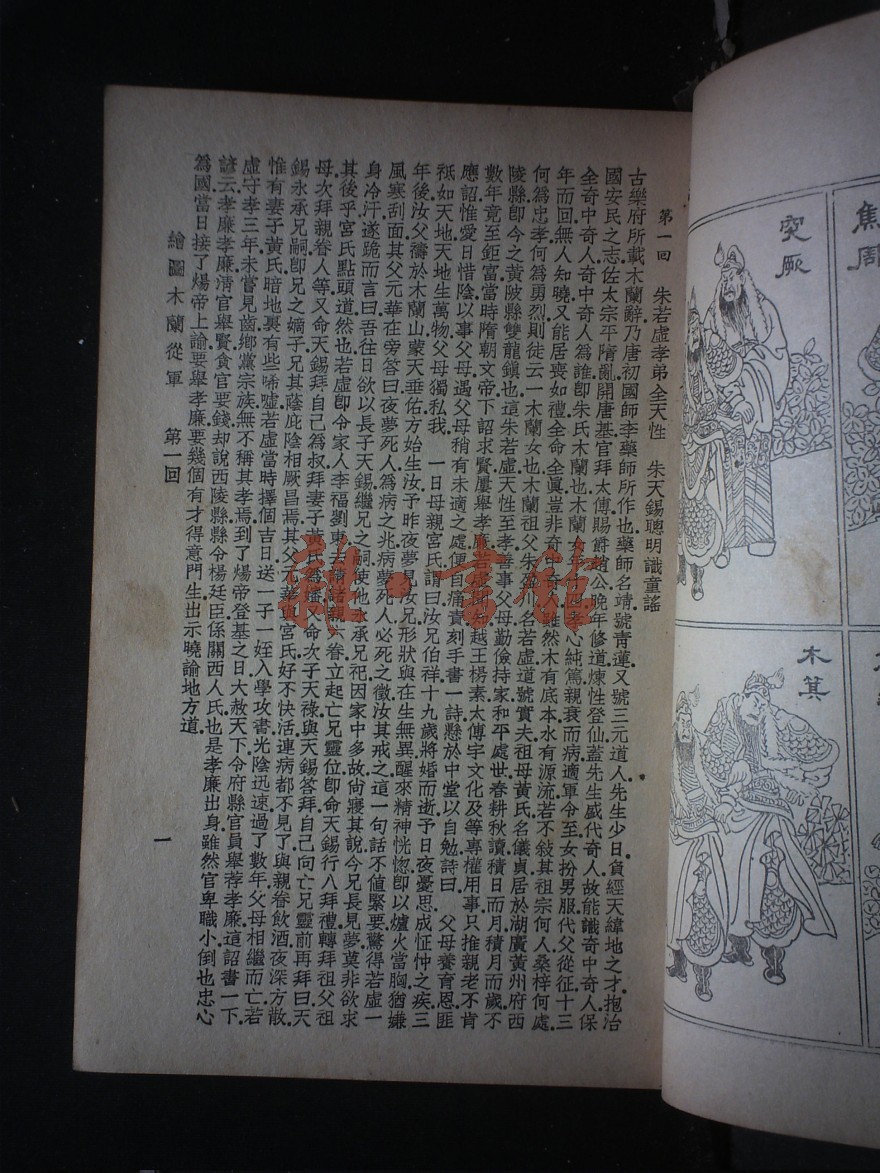 第一回　朱若虛孝弟全天性　朱天錫聰明識童謠
古樂府所載木蘭辭乃唐初國師李藥師所作也.藥師名靖.號青蓮.又號三元道人.先生少日.負經天緯地之才.抱治
國安民之志.佐太宗平隋亂.開唐基.官拜太傅.賜爵趙公.晚年修道煉性登仙.蓋先生盛代奇人.故能識奇中奇人.保
全奇中奇人.奇中奇人為誰.即朱氏木蘭也.木蘭女 四孝心純篤.親衰而病.適軍令至.女扮男服.代父從征.十三
年而回.無人知曉.又能居喪如禮.全命全眞.豈非奇中 雖然木有底本.水有源流.若不敍其祖宗何人.桑梓何處.
何爲忠孝.何爲勇烈.則徒云一木蘭女也.木蘭祖父.朱 川名若虛.道號實夫.祖母黃氏.名儀貞.居於湖廣黃州府西
陵縣.即今之黃陂縣雙龍鎭也.這朱若虛天性至孝.善事父母.勤儉持家.和平處世.春耕秋讀.積日而月.積月而歲.不
數年竟至鉅富.當時隋朝文帝下詔求賢.屢舉孝廉.若虛 越王楊素.太傅宇文化及等專權用事.只推親老不肯
應詔.惟愛日惜陰.以事父母.遇父母稍有未適之處.便自痛責刻.手書一詩.懸於中堂以自勉.詩曰.　父母養育恩.匪
祇如天地.天地生萬物.父母獨私我.　一日母親宮氏謂曰.汝兄伯祥.十九歲將婚而逝.予日夜憂思.成怔忡之疾.三
年後汝父禱於木蘭山.蒙天垂佑.方始生汝.予昨夜夢見汝兄形狀.與在生無異.醒來精神恍惚.即以爐火當胸.猶嫌
風寒刮面.其父元華在旁答曰.夜夢死人.爲病之兆.病夢死人.必死之徵.汝其戒之.這一句話不値緊要.驚得若虛一
身冷汗.遂跪而言曰.吾往日欲以長子天錫繼兄之嗣.使他永承兄祀.因家中多故.尙寢其說.今兄長見夢.莫非欲求
其後乎.宮氏點頭道.然也.若虛即令家人李福劉東.去請諸親六眷.立起亡兄靈位.即命天錫行八拜禮.轉拜祖父祖
母.次拜親眷人等.又命天錫拜自己爲叔.拜妻子黃氏爲嬸.又命次子天祿與天錫答拜.自己向亡兄靈前再拜曰.天
錫永承兄嗣.即兄之嫡子.兄其蔭庇陰相.厥昌焉.其父元華與宮氏好不快活.連病都不見了.與親眷飲酒.夜深方散.
惟有妻子黃氏.暗地裏有些唏噓.若虛當時擇個吉日.送一子一姪入學攻書.光陰迅速.過了數年.父母相繼而亡.若
虛守孝三年.未嘗見齒.鄉黨宗族.無不稱其孝焉.到了煬帝登基之日.大赦天下.令府縣官員舉荐孝廉.這詔書一下.
諺云.孝廉孝廉.淸官舉賢.貪官要錢.却說西陵縣縣令楊廷臣.係關西人氏.也是孝廉出身.雖然官卑職小.倒也忠心
爲國.當日接了煬帝上諭.要舉孝廉.要幾個有才得意門生.出示曉諭地方道.
繪圖木蘭從軍　第一回
一
焦周
突厥
木箕
雜·書館